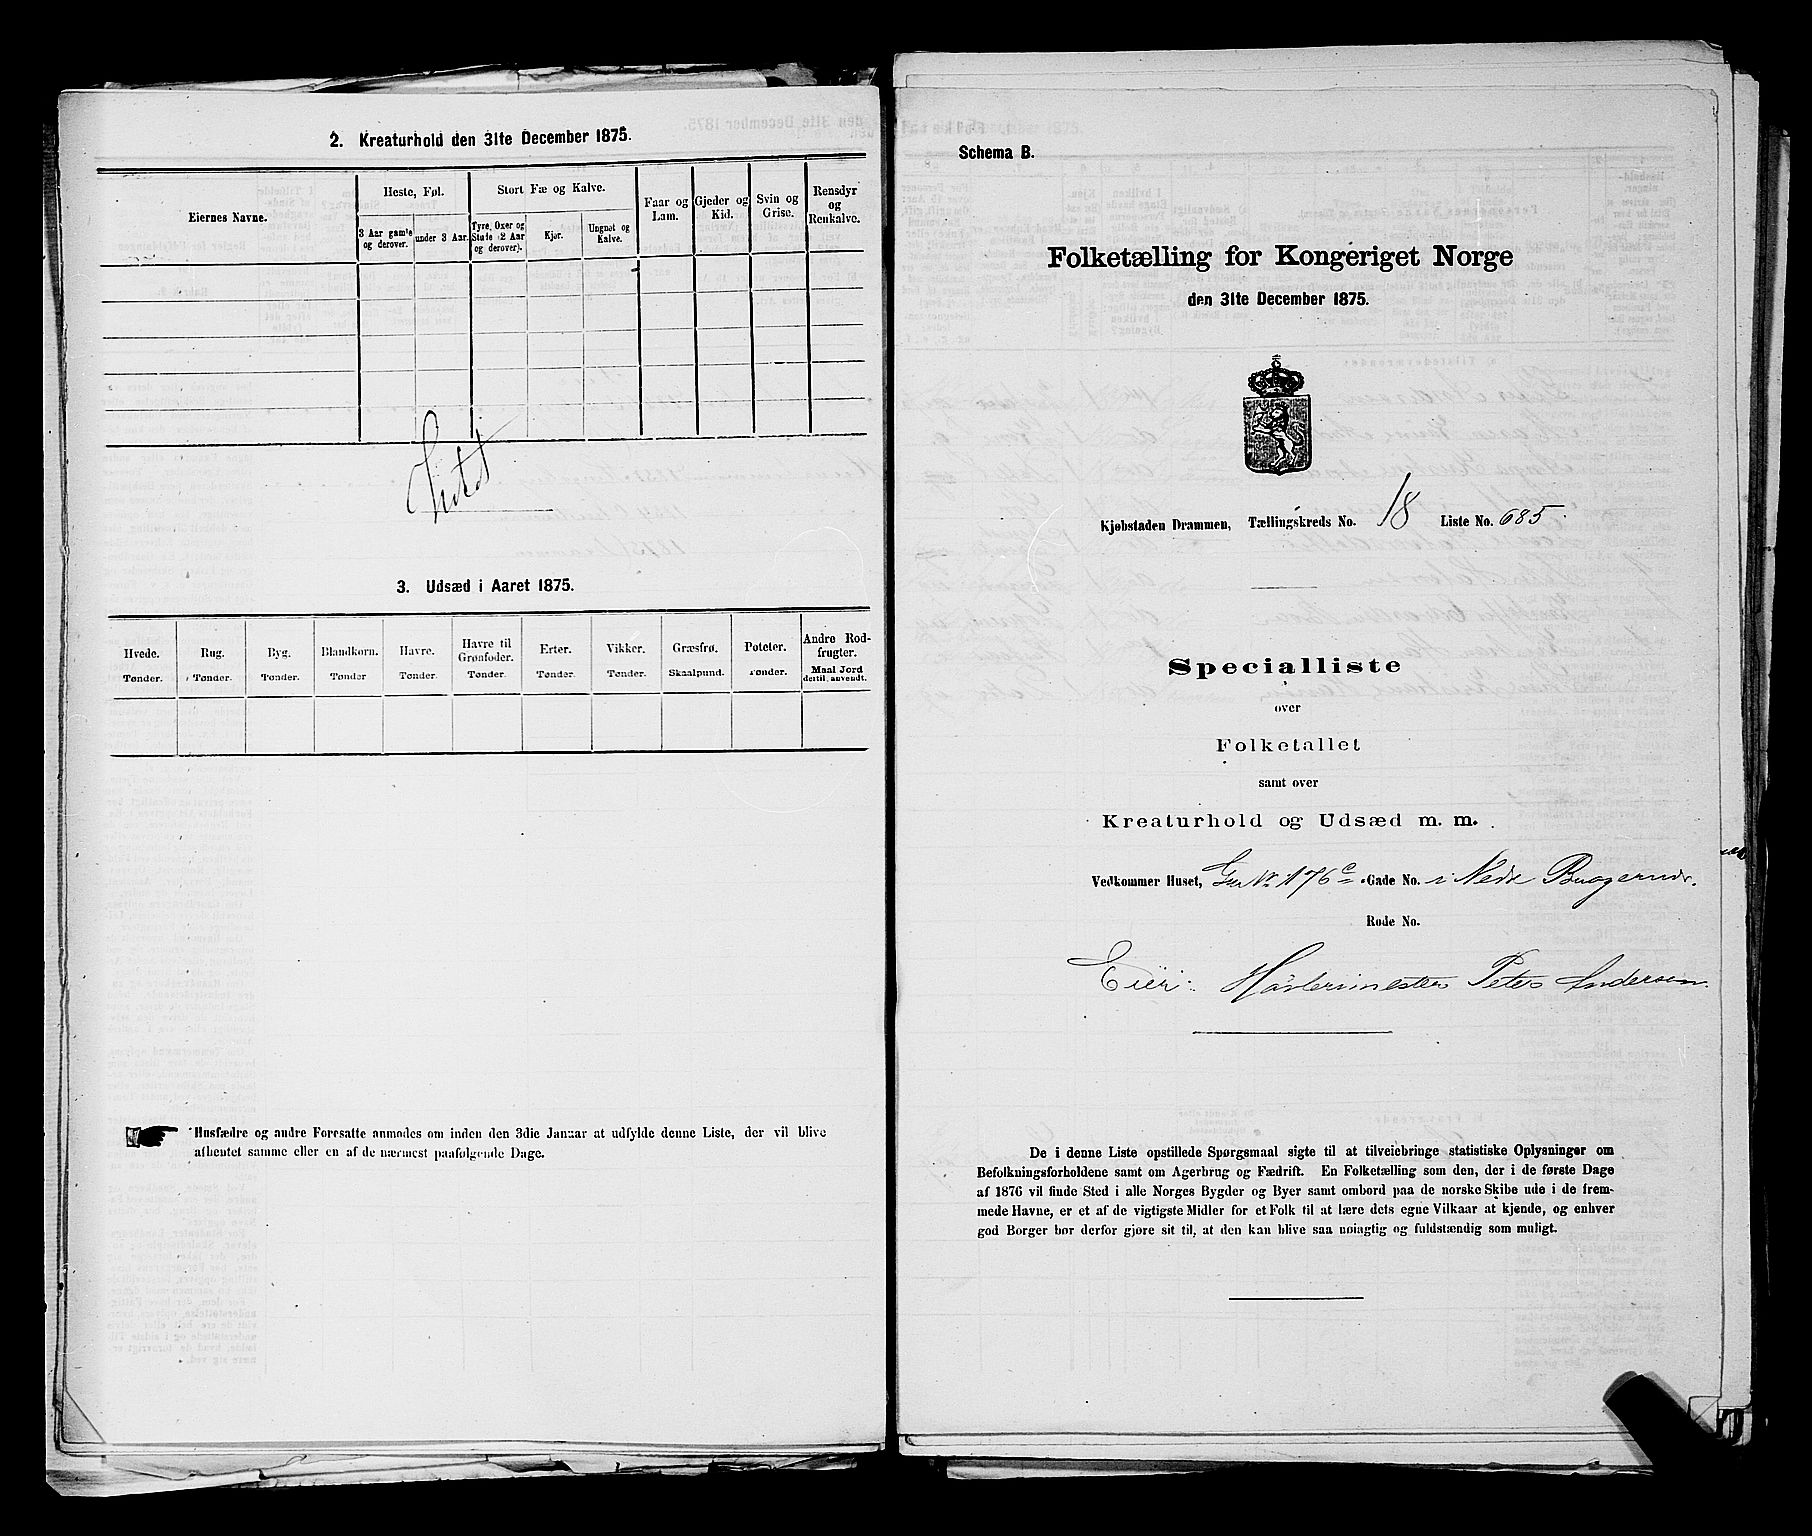 2. Kreaturhold den 31te December 1875.
Eiernes Navne.
Heste, Føl.
Stort Fæ og Kalve.
Faar og Lam.
Gjeder og Kid.
Svin og Grise.
Rensdyr og Renkalve.
3 Aar gamle og derover.
under 3 Aar.
Tyre, Oxer og Stude (2 Aar og derover).
Kjør.
Ungnøt og Kalve.
3. Udsæd i Aaret 1875.
Hvede. Tønder.
Rug. Tønder.
Byg. Tønder.
Blandkorn. Tønder
Havre. Tønder.
Havre til Grønfoder. Tønder.
Erter. Tønder.
Vikker. Tønder.
Græsfrø. Skaalpund.
Poteter. Tønder.
Andre Rodfrugter. Maal Jord dertil anvendt.
Husfædre og andre Foresatte anmodes om inden den 3die Januar at udfylde denne Liste, der vil blive
afhentet samme eller en af de nærmest paafølgende Dage.
Schema B.
Folketælling for Kongeriget Norge
den 31te December 1875.
Kjøbstaden Drammen, Tællingskreds No. 18 Liste No. 685.
Specialliste
over
Folketallet
samt over
Kreaturhold og Udsæd m. m.
Vedkommer Huset, 176c Gade No. i Nedr Bragernæs.
Rode No.
Eier: Høvlermester Peter Andersen.
De i denne Liste opstillede Spørgsmaal sigte til at tilveiebringe statistiske Oplysninger om
Befolkningsforholdene samt om Agerbrug og Fædrift. En Folketælling som den, der i de første Dage
af 1876 vil finde Sted i alle Norges Bygder og Byer samt ombord paa de norske Skibe ude i de frem-
mede Havne, er et af de vigtigste Midler for et Folk til at lære dets egne Vilkaar at kjende, og enhver
god Borger bør derfor gjøre sit til, at den kan blive saa nøiagtig og fuldstændig som muligt.